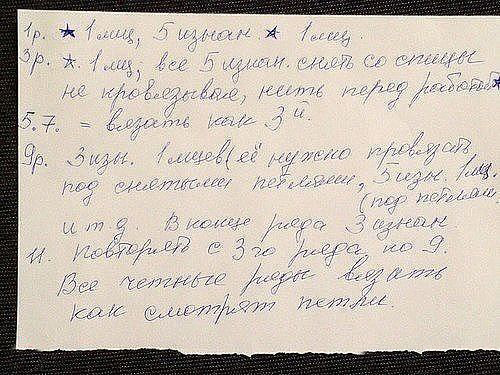 1р. ★ 1 лиц, 5 изнан. ★ 1 лиц.
3р. ☆. 1 лиц; все 5 изнан. снять со спицы
не провязывая, нить перед работой★
5. 7. = вязать как 3й.
9р. 3 изн. 1 лицев (её нужно провязать
под снятыми петлями, 5 изн. 1 лиц.
(под петлями
и т. д. В конце ряда 3 изнан.
11. Повторять с 3го ряда по 9.
Все четные ряды вязать
как смотрят петли.